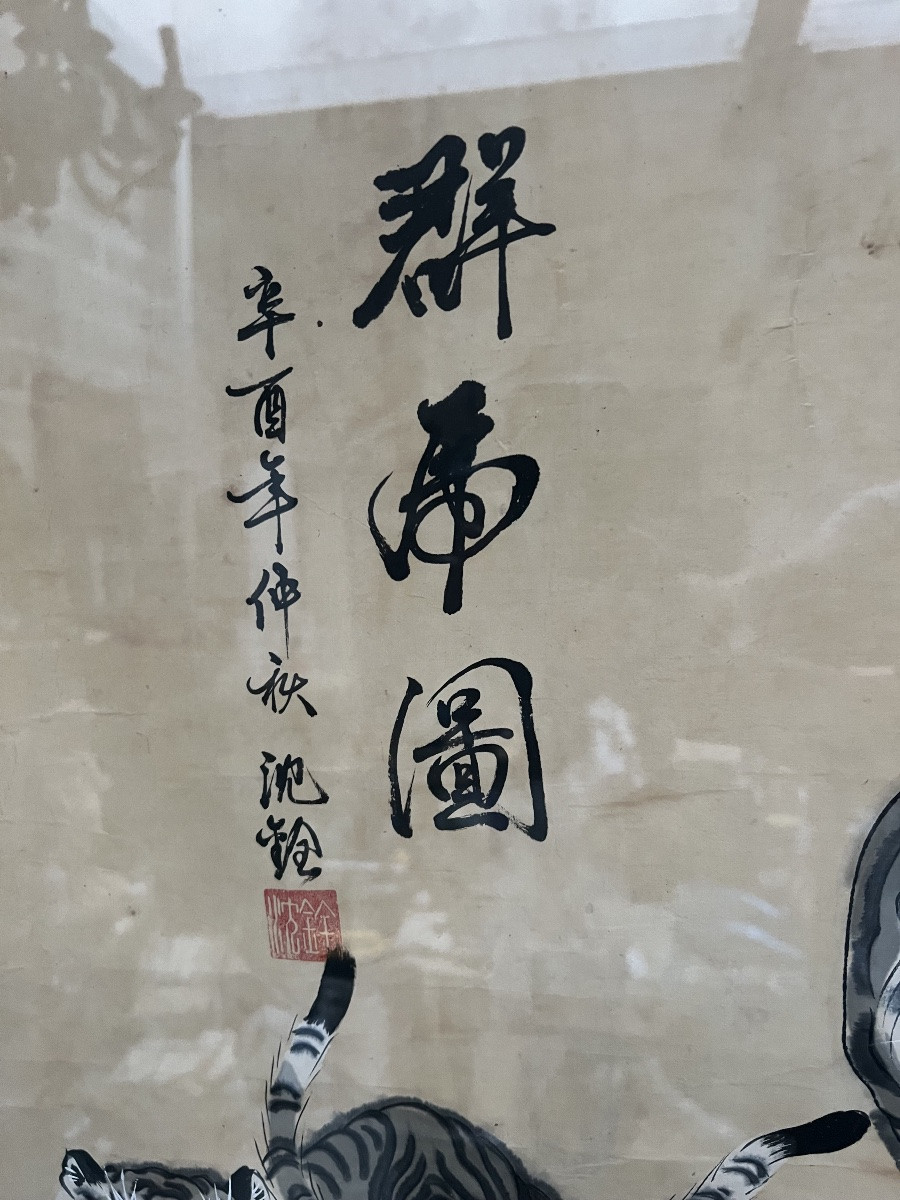 群虎圖
辛酉年仲秋 沈銓
沈銓